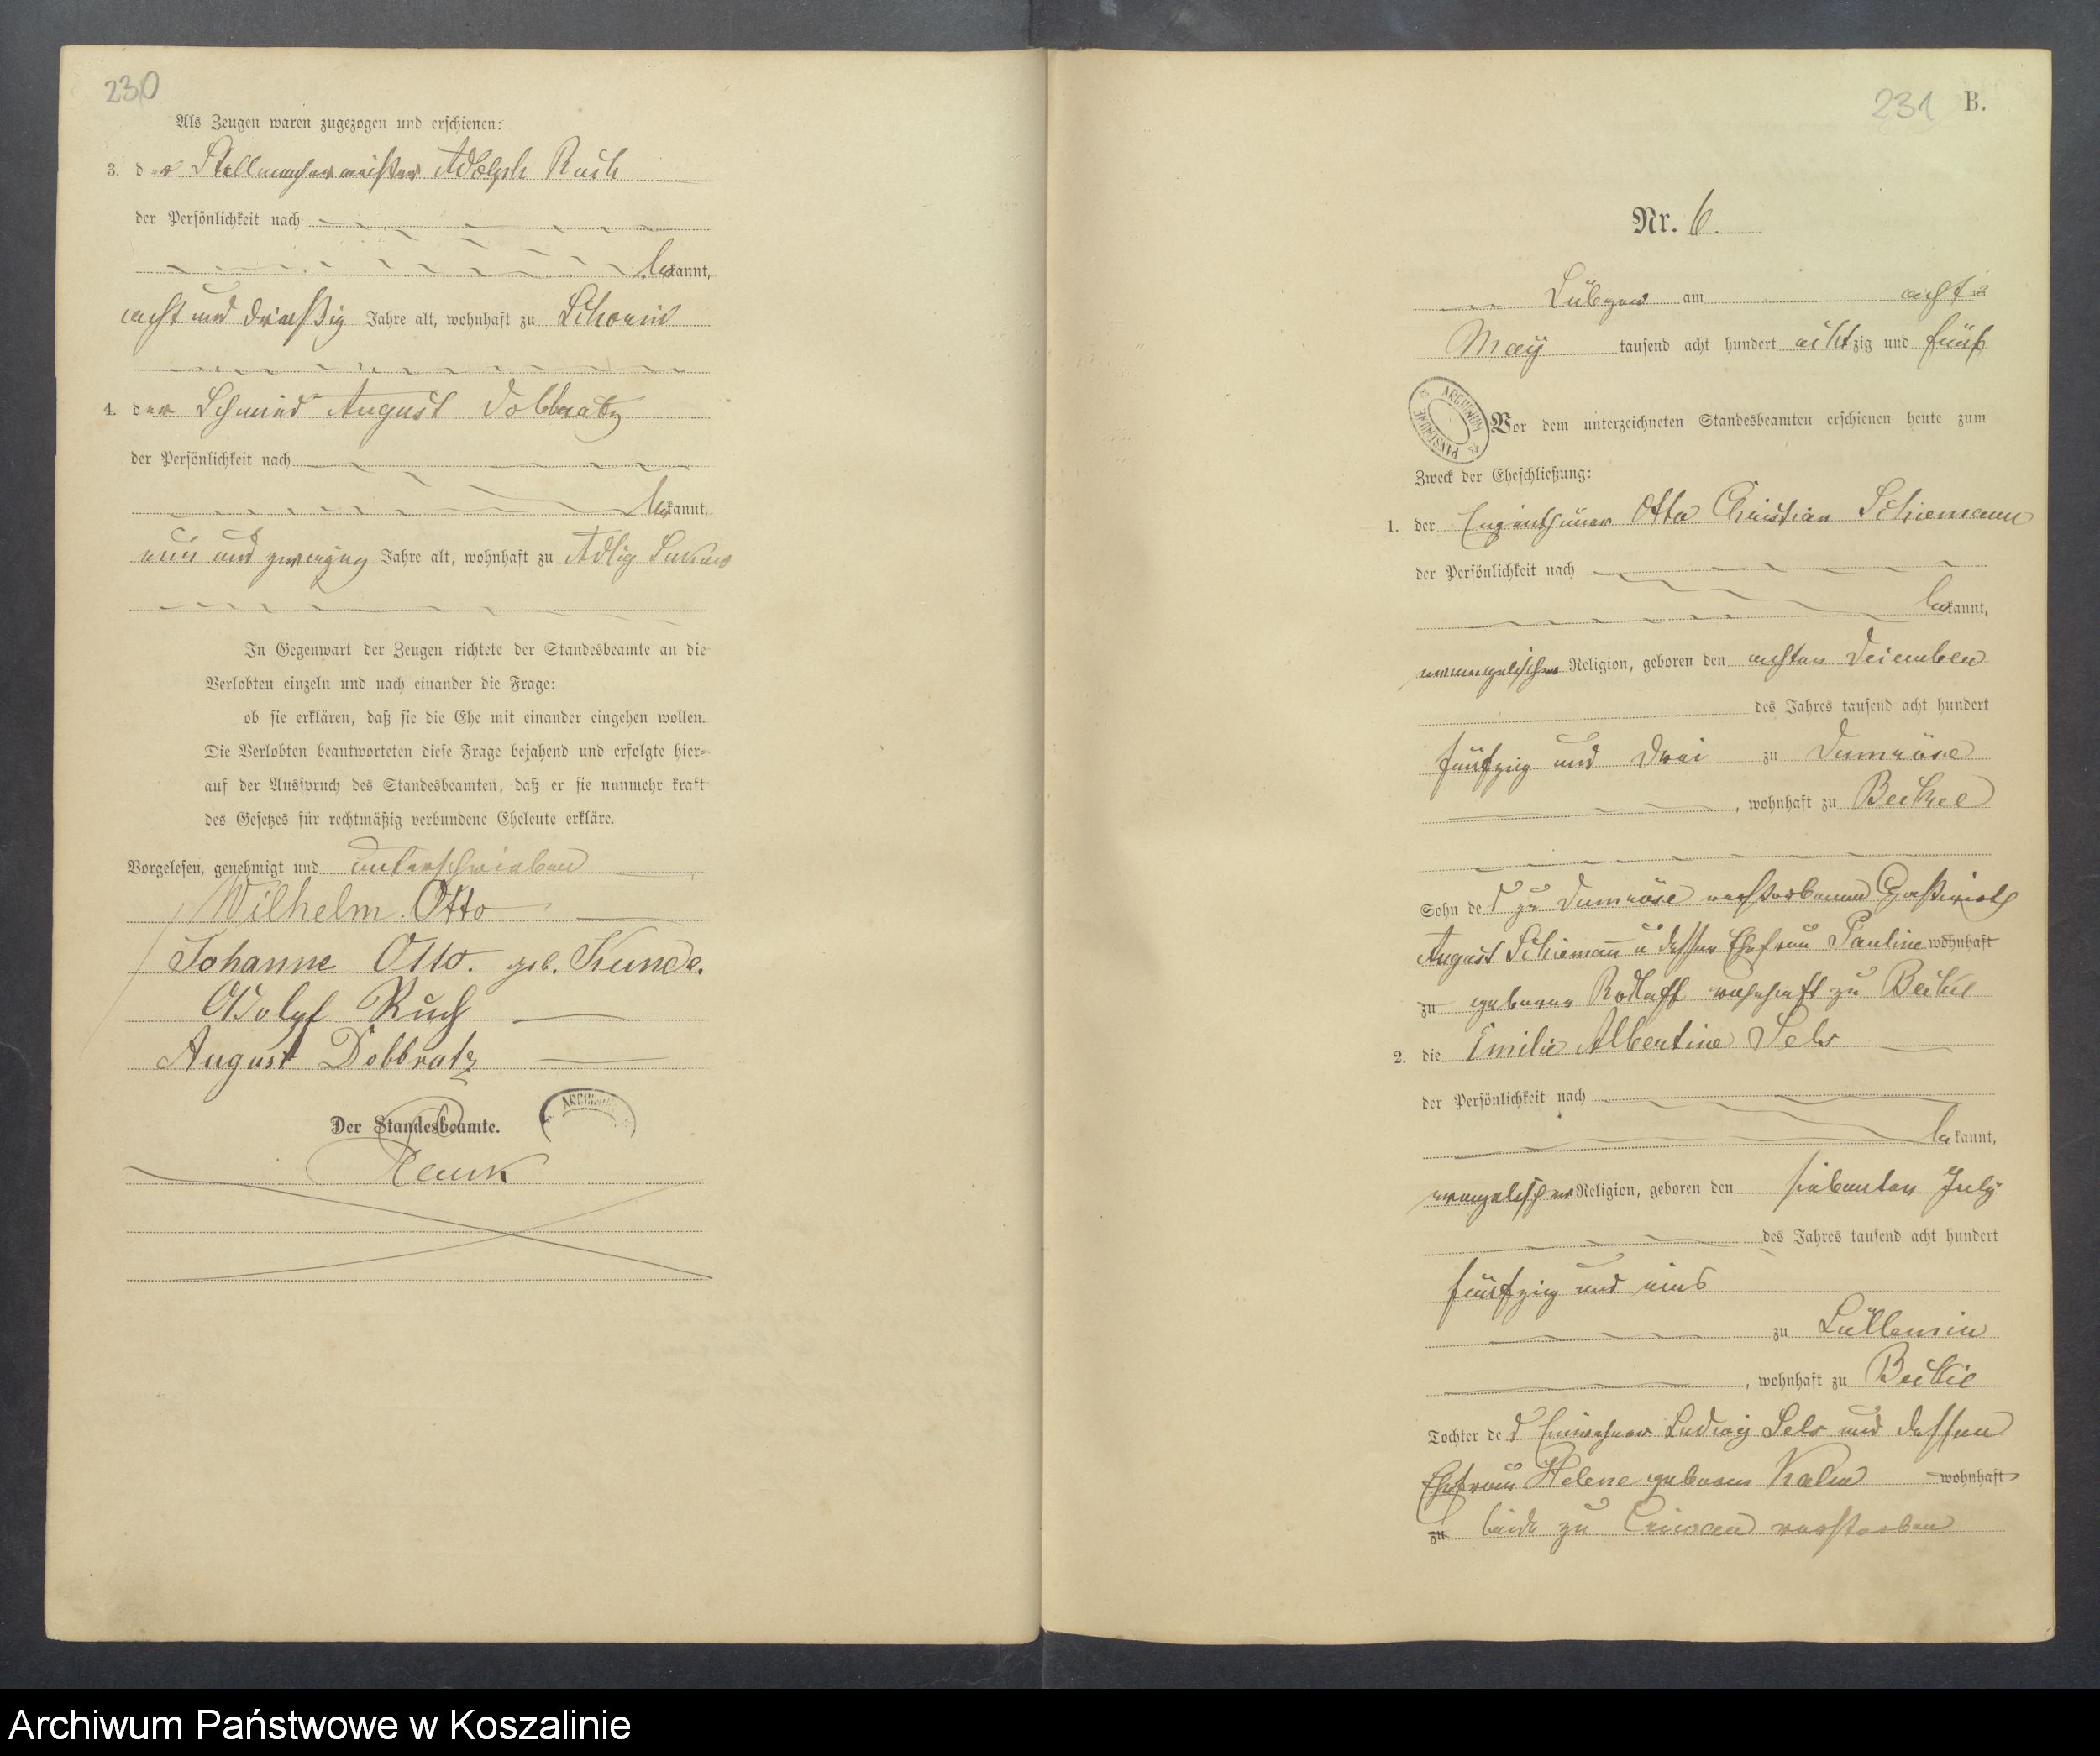 230
Als Zeugen waren zugezogen und erschienen:
3. der Stellmachermeister Adolph Ruch
der Persönlichkeit nach
bekannt,
acht und dreißig Jahre alt, wohnhaft zu Schorin
4. der Schmied August Dobbratz
der Persönlichkeit nach
bekannt,
neun und zwanzig Jahre alt, wohnhaft zu Adlig
In Gegenwart der Zeugen richtete der Standesbeamte an die
Verlobten einzeln und nach einander die Frage:
ob sie erklären, daß sie die Ehe mit einander eingehen wollen.
Die Verlobten beantworteten diese Frage bejahend und erfolgte hier-
auf der Ausspruch des Standesbeamten, daß er sie nunmehr kraft
des Gesetzes für rechtmäßig verbundene Eheleute erkläre.
Vorgelesen, genehmigt und unterschrieben
Wilhelm Otto
Johanne Otto. geb. Kunde.
Adolpf Ruch
August Dobbratz
Der Standesbeamte.
ARCHIWUM
231 B.
Nr. 6.
am acht
May tausend acht hundert achtzig und fünf
ARCHIWUM PAŃSTWOWE
Vor dem unterzeichneten Standesbeamten erschienen heute zum
Zweck der Eheschließung:
1. der Eigenthümer Otto Christian Schiemann
der Persönlichkeit nach
bekannt,
evangelischer Religion, geboren den achten Dezember
des Jahres tausend acht hundert
fünfzig und drei zu Dumröse
, wohnhaft zu
Sohn des zu Dumröse verstorbenen Gastwirth
August Schiemann u dessen Ehefrau Pauline wohnhaft
zu geborene wohnhaft zu
2. die Emilie Albertine Sels
der Persönlichkeit nach
bekannt,
evangelischer Religion, geboren den siebenten July
des Jahres tausend acht hundert
fünfzig und eins
zu Lüllemin
, wohnhaft zu
Tochter des Einwohner Ludwig Sels und dessen
Ehefrau Helene geborene wohnhaft
zu beide zu Criwan verstorben
Archiwum Państwowe w Koszalinie